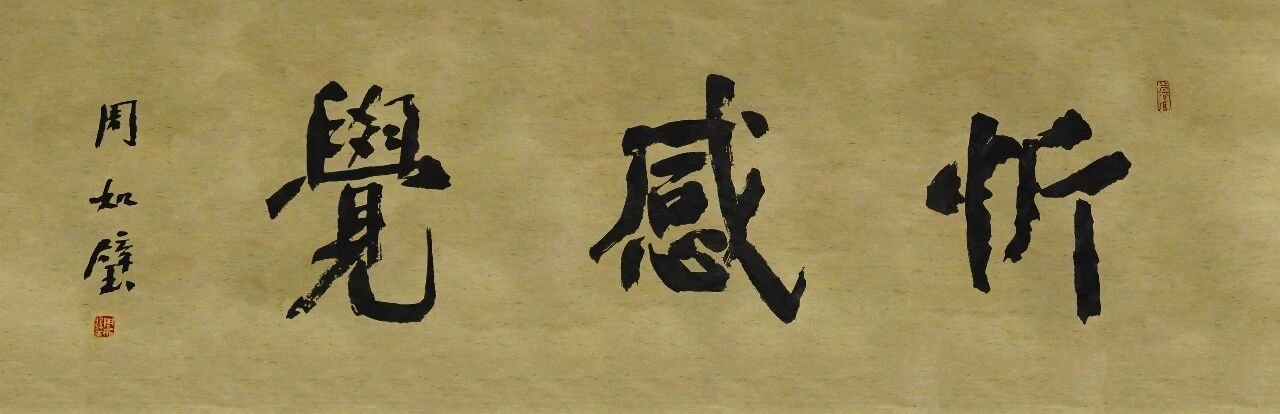 忻感覺
周如璧